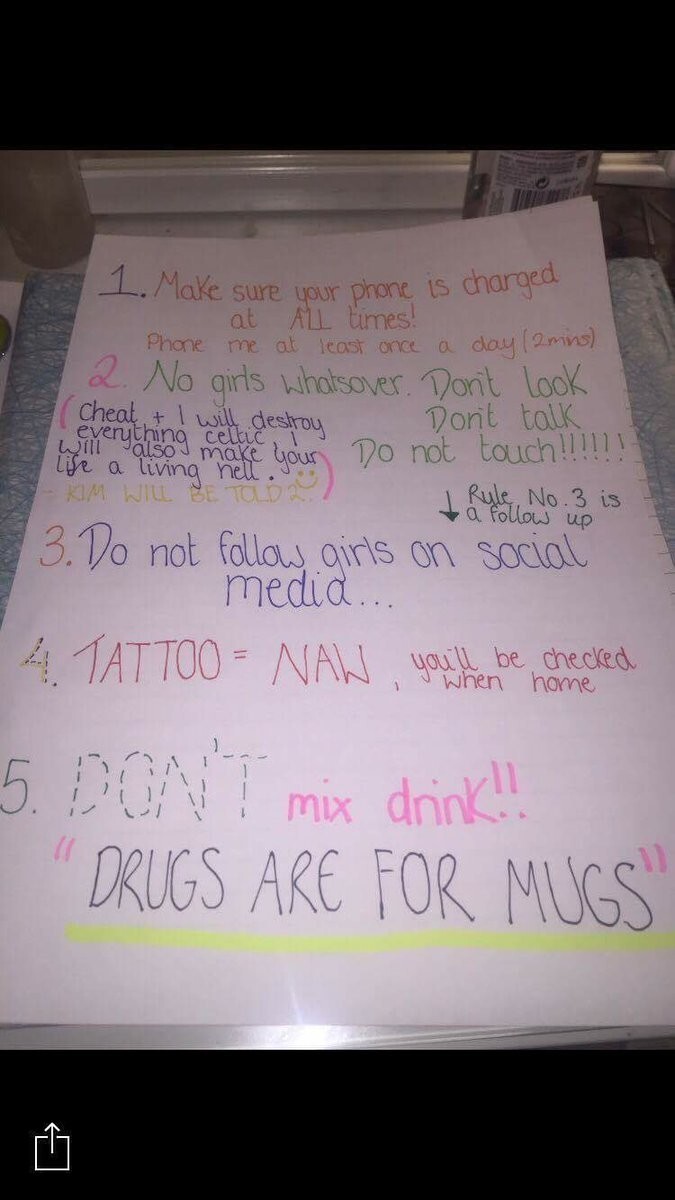 1. Make sure your phone is charged
at ALL times!
Phone me at least once a day (2mins)
2. No girls whatsover. Don't look
Don't talk
Do not touch!!!!!!
(Cheat + I will destroy
everything celtic, I
will also make your
life a living hell. )
- KIM WILL BE TOLD 2.
↓ Rule No.3 is
a follow up
3. Do not follow girls on social
media...
4. TATTOO = NAW, you'll be checked
when home
5. DON'T mix drink!!
"DRUGS ARE FOR MUGS"